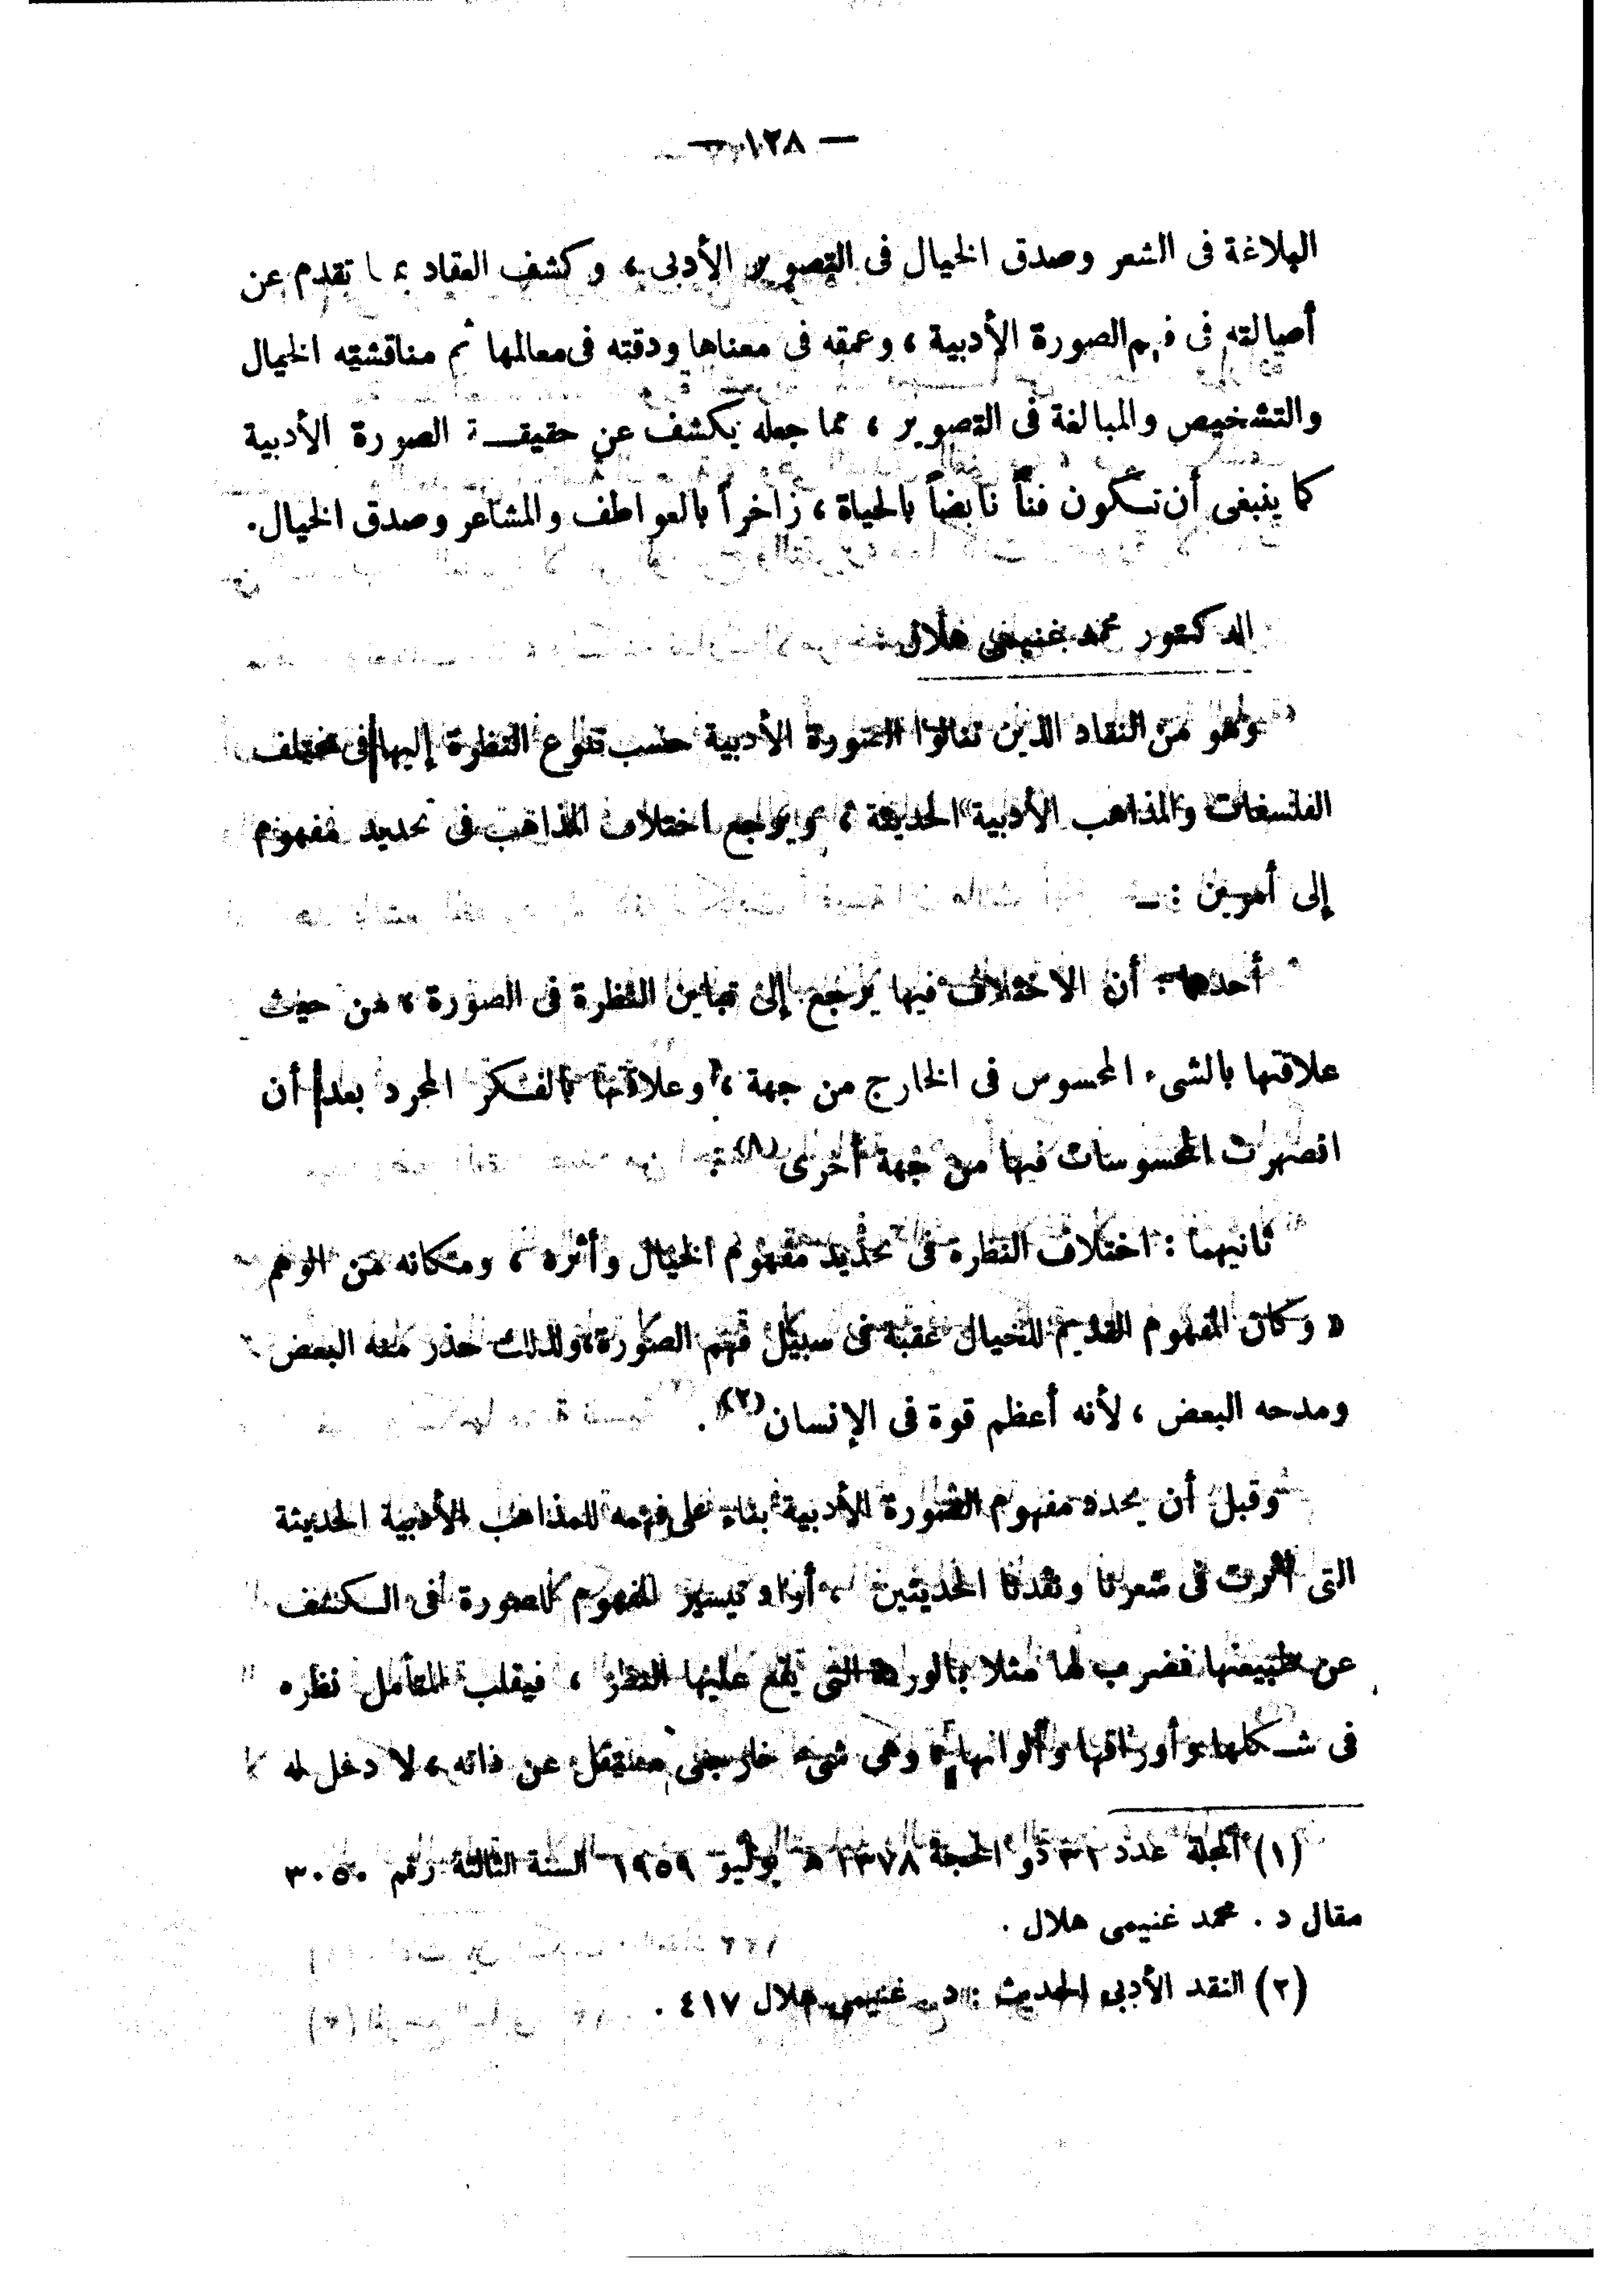 — ١٢٨ —
البلاغة فى الشعر وصدق الخيال فى التصوير الأدبى ، وكشف العقاد بما تقدم عن
أصالته فى فهم الصورة الأدبية ، وعمقه فى معناها ودقته فى معالمها ثم مناقشته الخيال
والتشخيص والمبالغة فى التصوير ، مما جعله يكشف عن حقيقة الصورة الأدبية
كما ينبغى أن تكون فناً نابضاً بالحياة ، زاخراً بالعواطف والمشاعر وصدق الخيال.
الدكتور محمد غنيمى هلال
وهو من النقاد الذين تناولوا الصورة الأدبية حسب تنوع النظرة إليها فى مختلف
الفلسفات والمذاهب الأدبية الحديثة ، ويرجع اختلاف المذاهب فى تحديد مفهوم
إلى أمرين : —
أحدها : أن الاختلاف فيها يرجع إلى تباين النظرة فى الصورة ، من حيث
علاقتها بالشىء المحسوس فى الخارج من جهة ، وعلاقتها بالفكر المجرد بعد أن
انصهرت المحسوسات فيها من جهة أخرى (١) .
ثانيهما : اختلاف النظرة فى تحديد مفهوم الخيال وأثره ، ومكانه من الوهم
« وكان المفهوم القديم للخيال عقبة فى سبيل فهم الصورة ، ولذلك حذر منه البعض
ومدحه البعض ، لأنه أعظم قوة فى الإنسان » (٢) .
وقبل أن يحدد مفهوم الصورة الأدبية بناء على فهمه للمذاهب الأدبية الحديثة
التى أثرت فى شعرنا ونقدنا الحديثين ، أراد تيسير المفهوم للصورة فى الكشف
عن طبيعتها فضرب لها مثلا بالوردة التى يقع عليها النظر ، فيقلب المتأمل نظره
فى شكلها وأوراقها وألوانها ، وهى شىء خارجى مستقل عن ذاته ، لا دخل له
(١) المجلة عدد ٣١ ذو الحجة ١٣٧٨ ه يوليو ١٩٥٩ السنة الثالثة رقم ٣٠٥٠
مقال د . محمد غنيمى هلال .
(٢) النقد الأدبى الحديث : د . غنيمى هلال ٤١٧ .